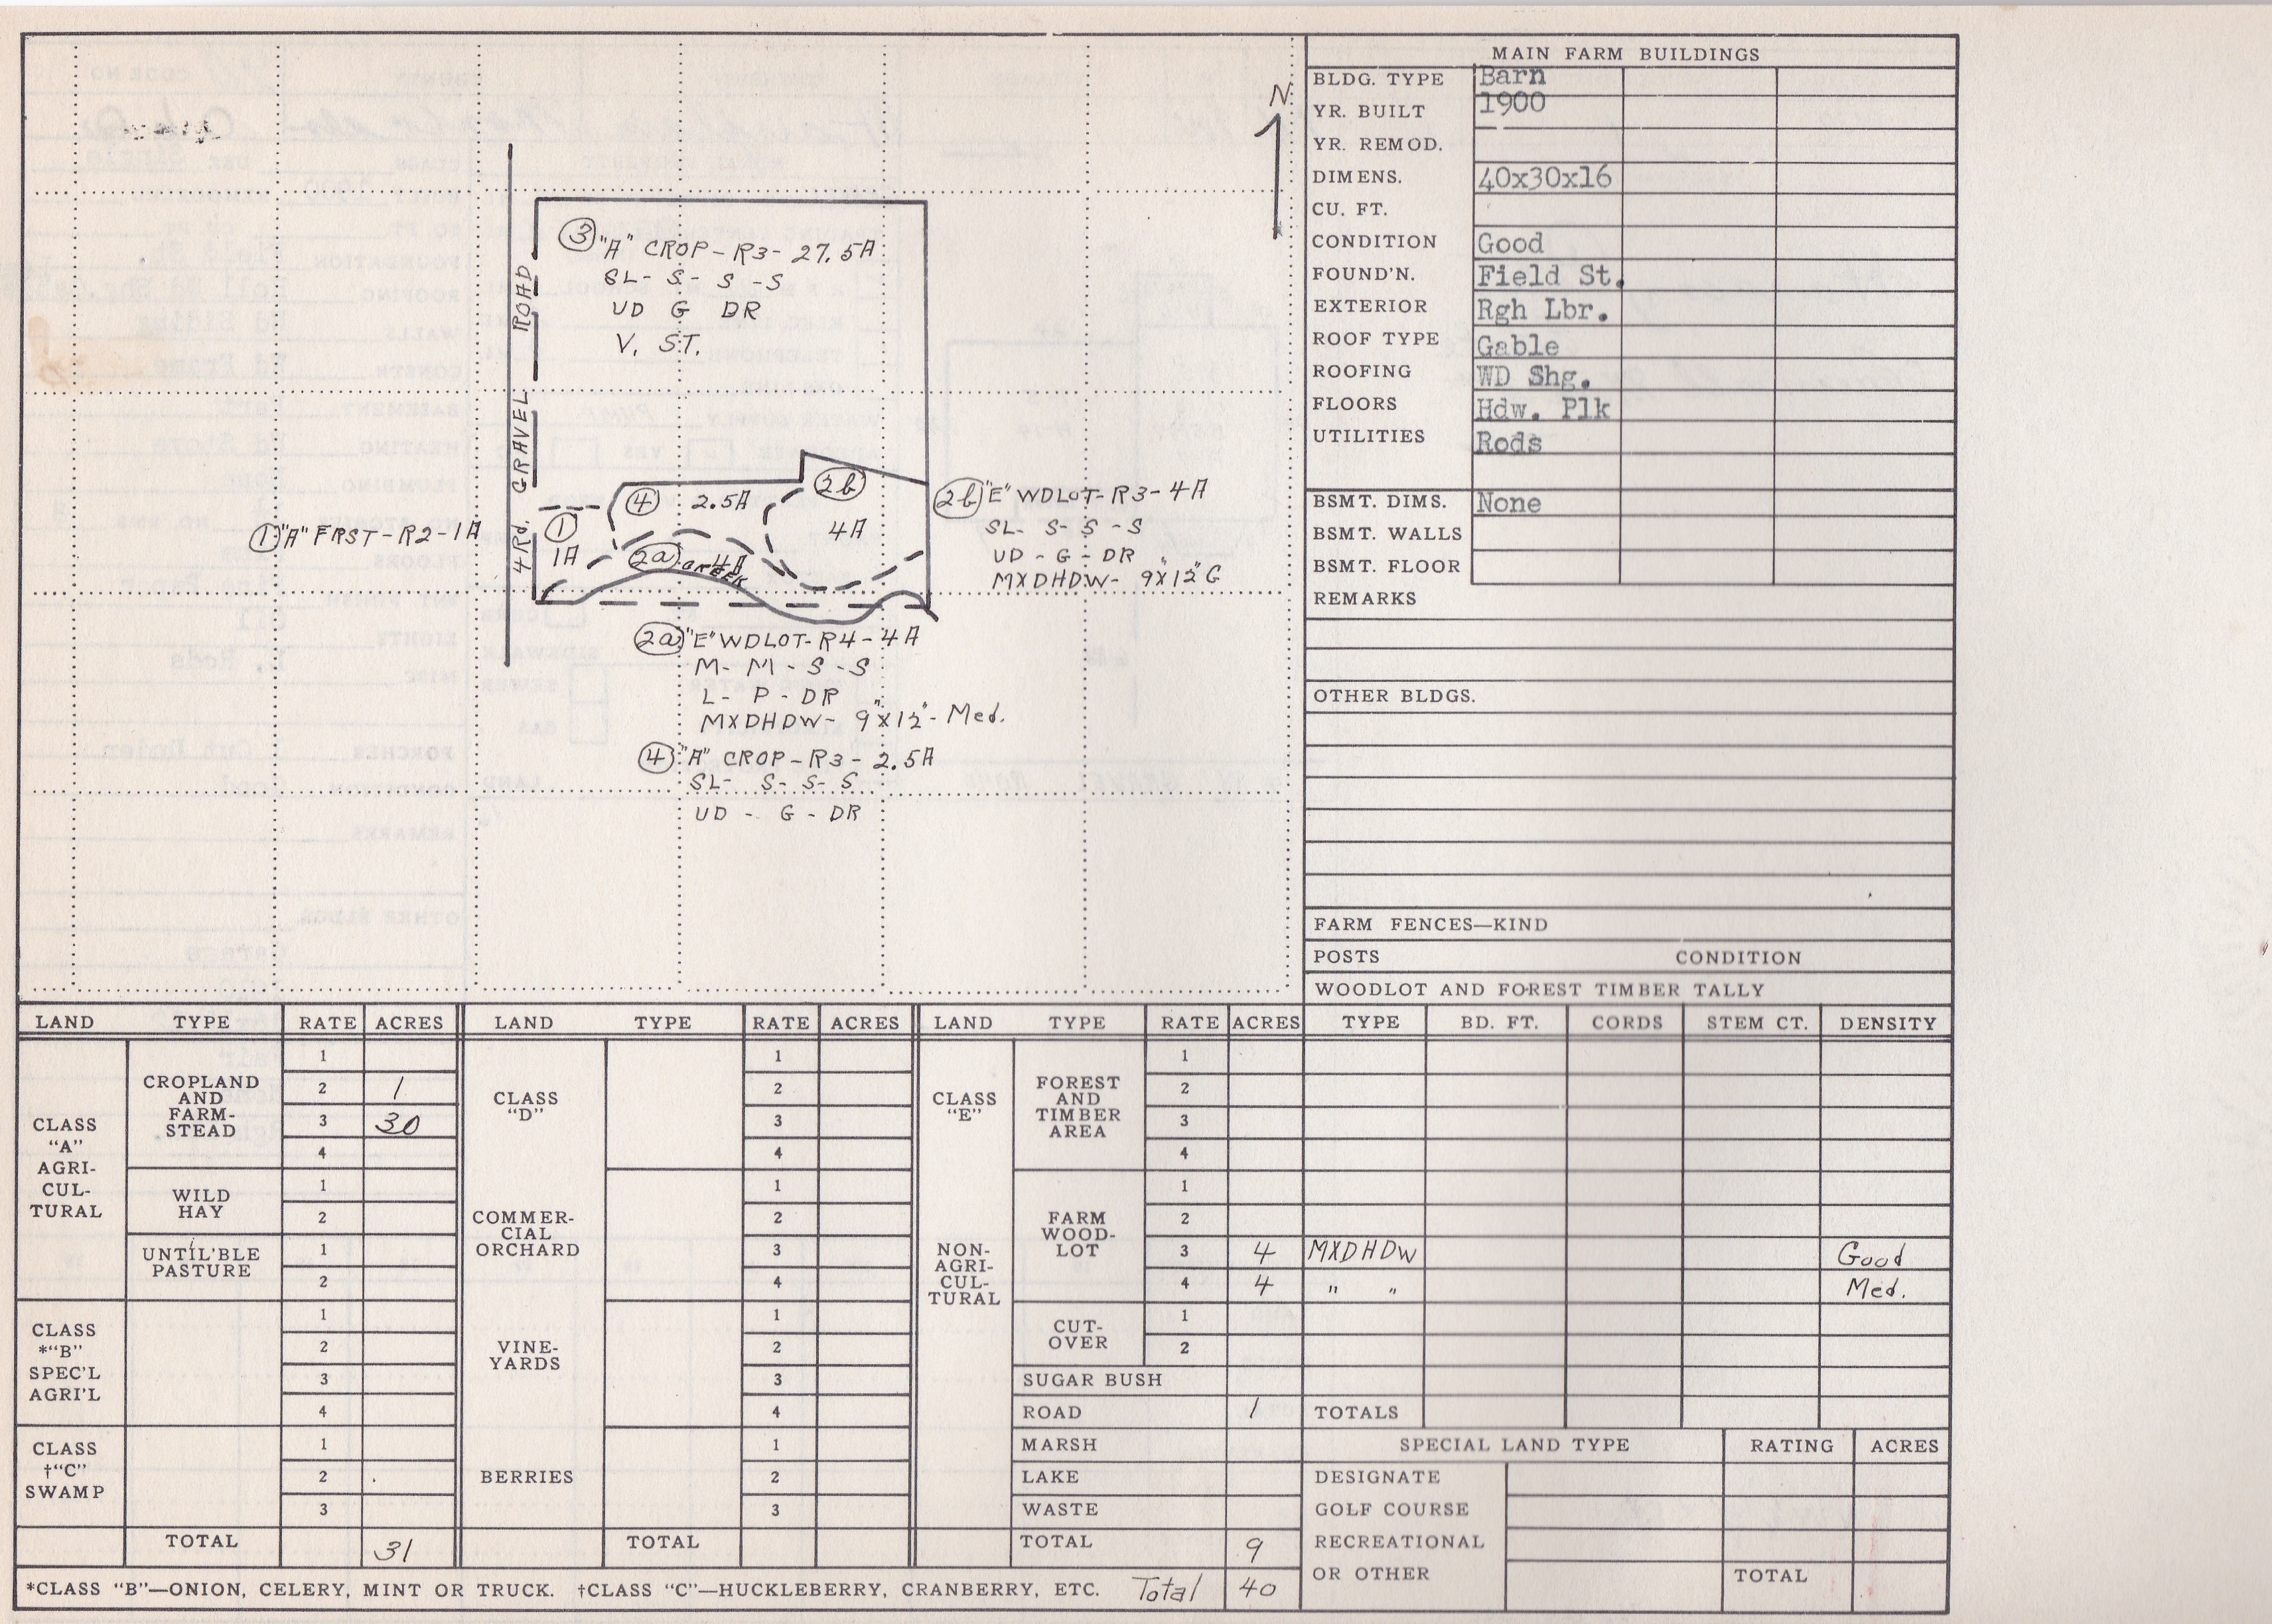 N
③ "A" CROP - R3 - 27.5A
SL - S - S - S
UD G DR
V. ST.
4 Rd. GRAVEL ROAD
① "A" FRST - R2 - 1A
①
1A
④ 2.5A
2b
4A
2a 4A
CREEK
2b "E" WDLOT - R3 - 4A
SL - S - S - S
UD - G - DR
MXDHDW - 9"X12" G
2a "E" WDLOT - R4 - 4A
M - M - S - S
L - P - DR
MXDHDW - 9"X12" - Med.
④ "A" CROP - R3 - 2.5A
SL - S - S - S
UD - G - DR
MAIN FARM BUILDINGS
BLDG. TYPE Barn
YR. BUILT 1900
YR. REMOD.
DIMENS. 40x30x16
CU. FT.
CONDITION Good
FOUND'N. Field St.
EXTERIOR Rgh Lbr.
ROOF TYPE Gable
ROOFING WD Shg.
FLOORS Hdw. Plk
UTILITIES Rods
BSMT. DIMS. None
BSMT. WALLS
BSMT. FLOOR
REMARKS
OTHER BLDGS.
FARM FENCES—KIND
POSTS CONDITION
WOODLOT AND FOREST TIMBER TALLY
LAND TYPE RATE ACRES LAND TYPE RATE ACRES LAND TYPE RATE ACRES TYPE BD. FT. CORDS STEM CT. DENSITY
CLASS
"A"
AGRI-
CUL-
TURAL
CROPLAND
AND
FARM-
STEAD
1
2 1
3 30
4
WILD
HAY
1
2
UNTIL'BLE
PASTURE
1
2
CLASS
*"B"
SPEC'L
AGRI'L
1
2
3
4
CLASS
†"C"
SWAMP
1
2
3
TOTAL 31
CLASS
"D"
1
2
3
4
COMMER-
CIAL
ORCHARD
1
2
3
4
VINE-
YARDS
1
2
3
4
BERRIES
1
2
3
TOTAL
CLASS
"E"
NON-
AGRI-
CUL-
TURAL
FOREST
AND
TIMBER
AREA
1
2
3
4
FARM
WOOD-
LOT
1
2
3 4 MXDHDW Good
4 4 " " Med.
CUT-
OVER
1
2
SUGAR BUSH
ROAD 1 TOTALS
MARSH
LAKE
WASTE
TOTAL 9
SPECIAL LAND TYPE RATING ACRES
DESIGNATE
GOLF COURSE
RECREATIONAL
OR OTHER TOTAL
*CLASS "B"—ONION, CELERY, MINT OR TRUCK. †CLASS "C"—HUCKLEBERRY, CRANBERRY, ETC. Total 40